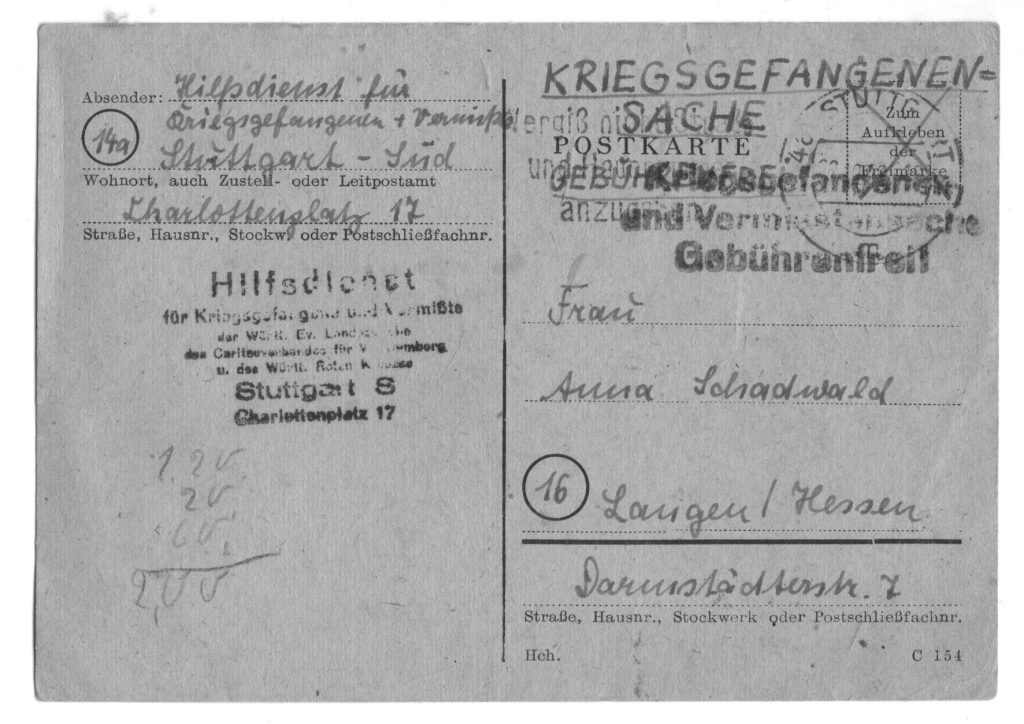 Absender: Hilfsdienst für
Kriegsgefangene + Vermißte
14a
Stuttgart - Süd
Wohnort, auch Zustell- oder Leitpostamt
Charlottenplatz 17
Straße, Hausnr., Stockw. oder Postschließfachnr.
Hilfsdienst
für Kriegsgefangene und Vermißte
der Württ. Ev.
des Caritasverbandes für
u. des Württ. Roten
Stuttgart S
Charlottenplatz 17
1,20
20
60
2,00
KRIEGSGEFANGENEN=
SACHE
POSTKARTE
STUTTGART
Zum
Aufkleben
der
Freimarke
und
anzugeben
Kriegsgefangenen
und Vermisstensache
Gebührenfrei!
Frau
Anna Schadwald
16
Langen / Hessen
Darmstädterstr. 7
Straße, Hausnr., Stockwerk oder Postschließfachnr.
Hch.
C 154